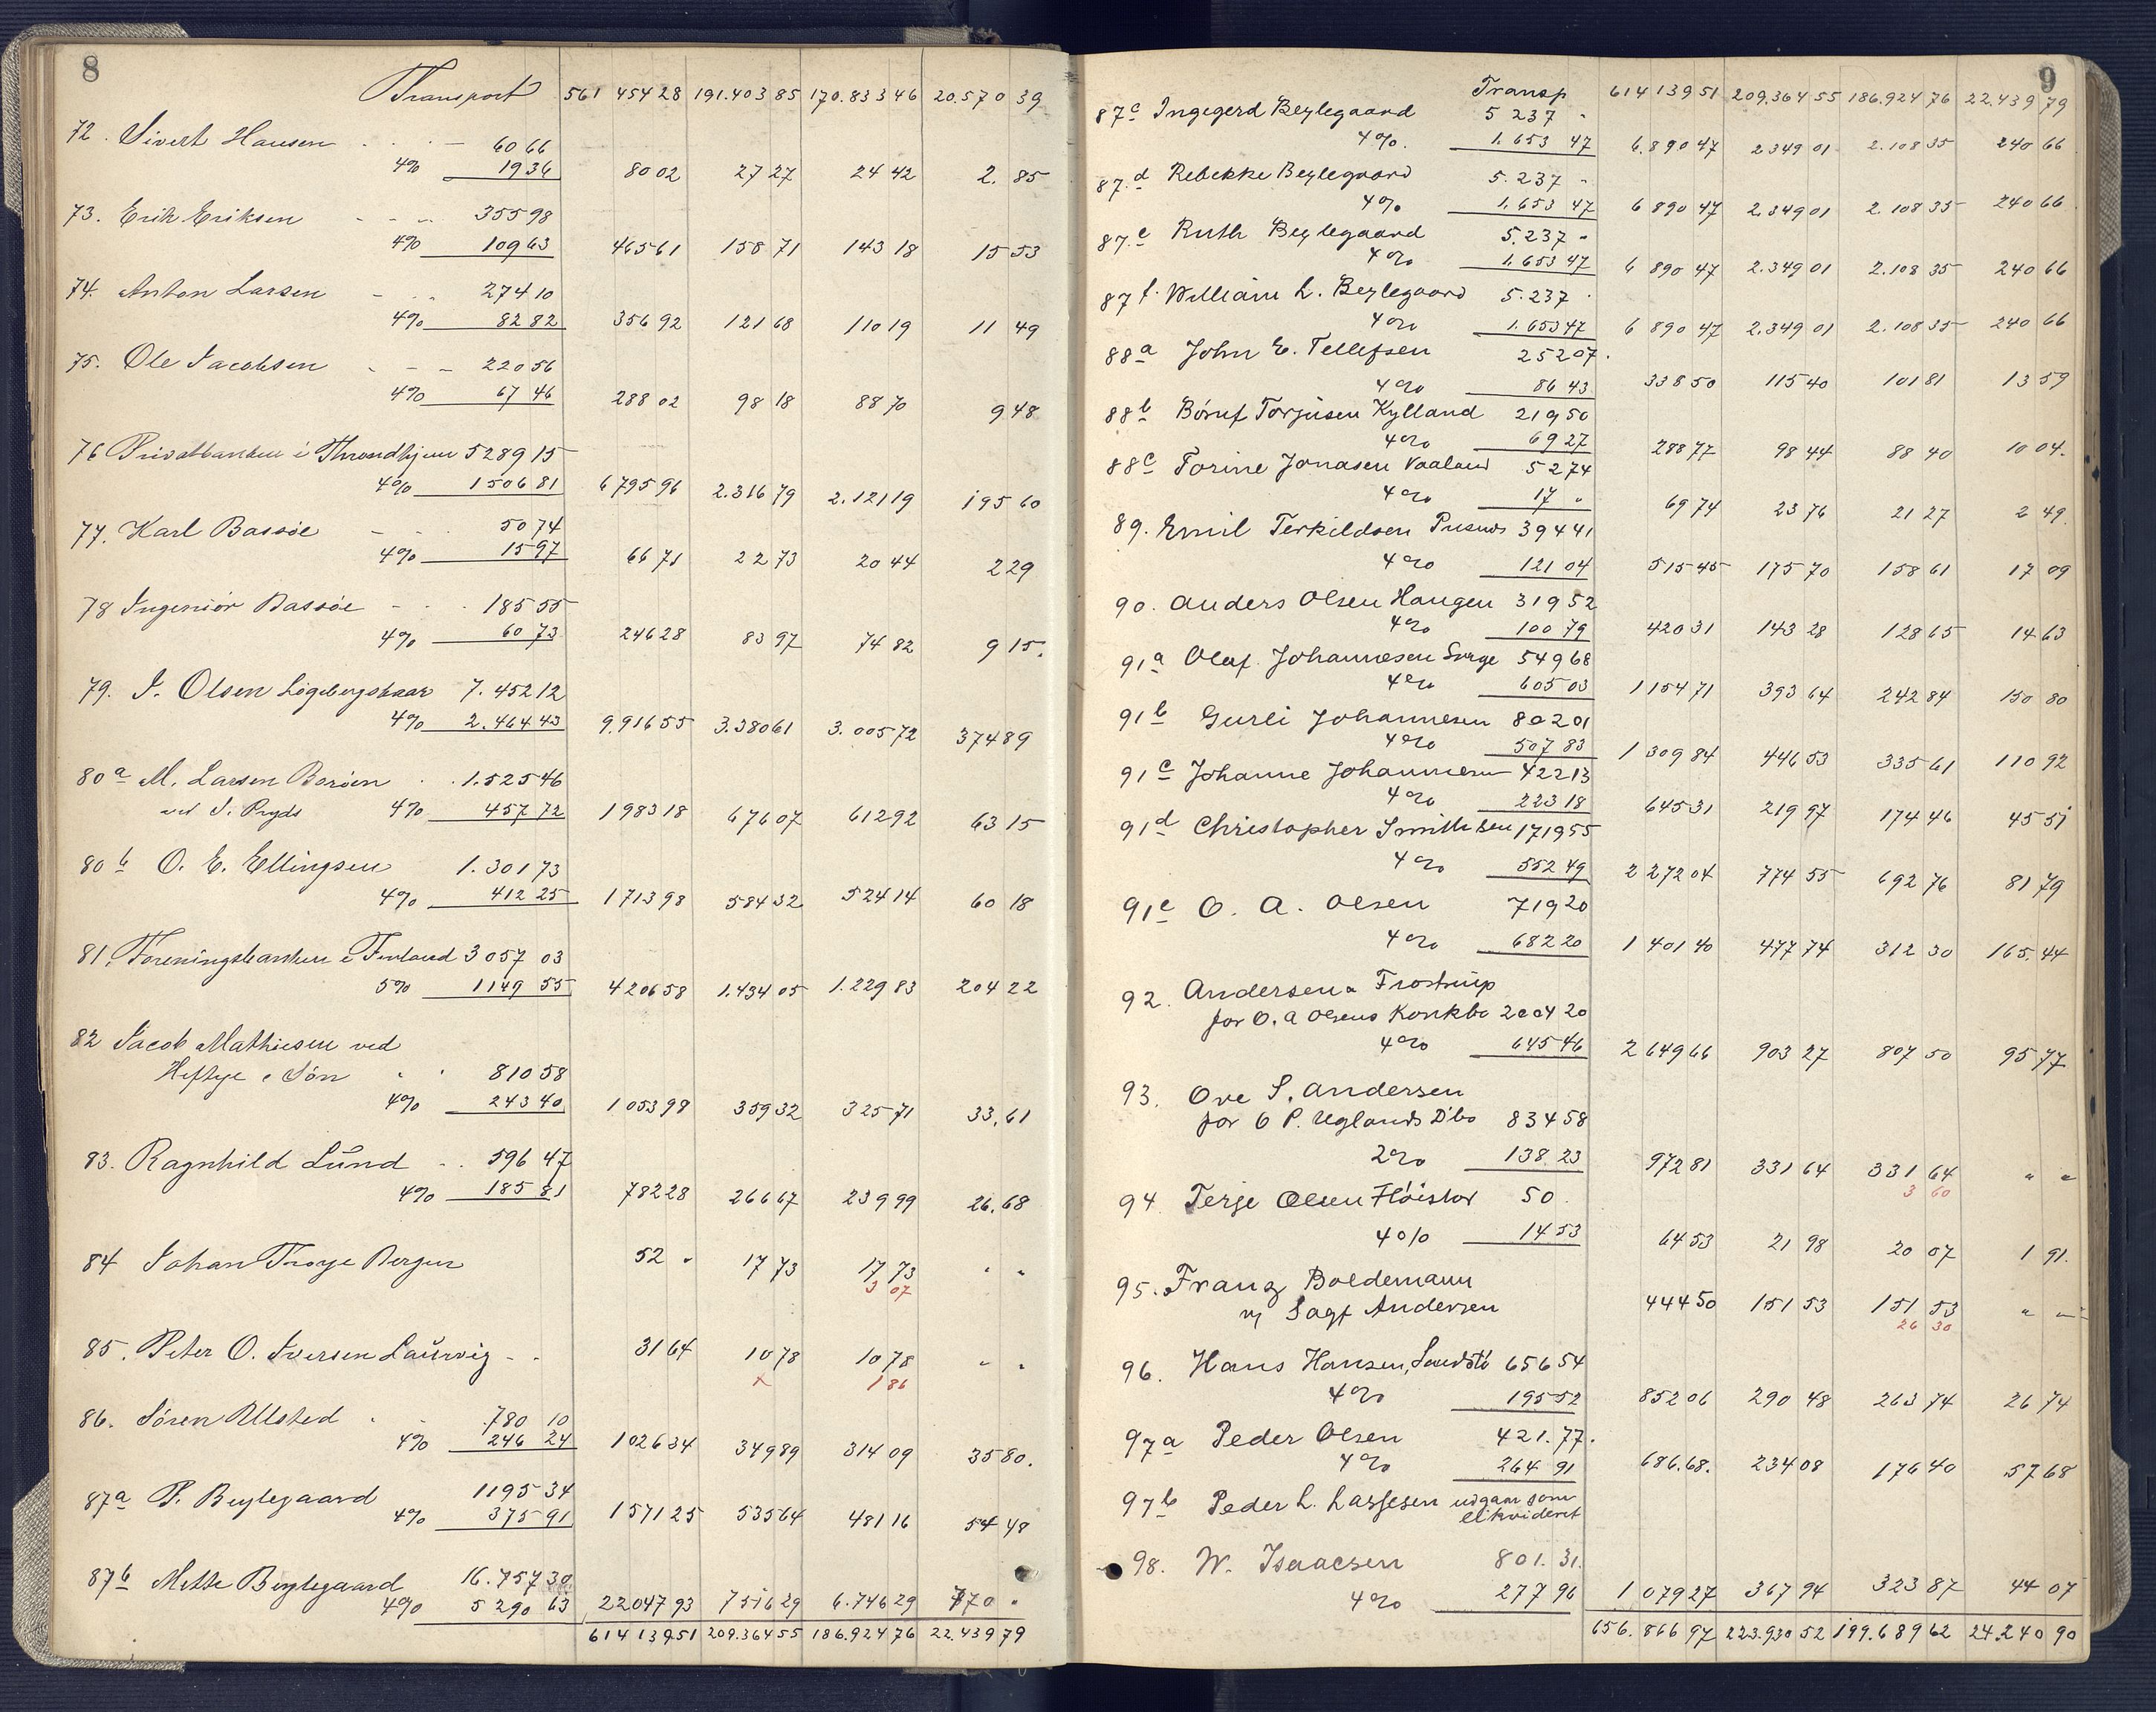 8
Transport 561 454 28 191.403 85 170.833 46 20.570 39
72. Sivert Hansen 60 66
4% 19 36 80 02 27 27 24 42 2. 85
73. Erik Eriksen 355 98
4% 109 63 465 61 158 71 143 18 15 53
74. Anton Larsen 274 10
4% 82 82 356 92 121 68 110 19 11 49
75. Ole Jacobsen 220 56
4% 67 46 288 02 98 18 88 70 9 48
76 Privatbanken i Throndhjem 5289 15
4% 1506 81 6795 96 2.316 79 2.121 19 195 60
77. Karl Bassöe 50 74
4% 15 97 66 71 22 73 20 44 2 29
78 Ingeniör Bassöe 185 55
4% 60 73 246 28 83 97 74 82 9 15.
79. J. Olsen Lögebergskaar 7.452 12
4% 2.464 43 9.916 55 3.380 61 3.005 72 374 89
80a M. Larsen Boröen 1.525 46
ved J. Pryds 4% 457 72 1983 18 676 07 612 92 63 15
80b O. E. Ellingsen 1.301 73
4% 412 25 1713 98 584 32 524 14 60 18
81. Foreningsbanken i Finland 3057 03
5% 1149 55 4206 58 1.434 05 1.229 83 204 22
82 Jacob Mathiesen ved
Heftye & Sön 810 58
4% 243 40 1053 98 359 32 325 71 33.61
83. Ragnhild Lund 596 47
4% 185 81 782 28 266 67 239 99 26.68
84 Johan Troye Bergen 52 " 17 73 17 73 " "
3 07
85. Peter O. Iversen Laurvig 31 64 10 78 10 78 " "
x 1 86
86. Sören Ullsted 780 10
4% 246 24 1026 34 349 89 314 09 35 80.
87a P. Beylegaard 1195 34
4% 375 91 1571 25 535 64 481 16 54 48
87b Mette Beylegaard 16.757 30
4% 5290 63 22047 93 7516 29 6.746 29 770 "
614 139 51 209.364 55 186.924 76 22.439 79
9
Transp 614 139 51 209.364 55 186.924 76 22.439 79
87c Ingegerd Beylegaard 5 237 "
4%. 1.653 47 6.890 47 2349 01 2.108 35 240 66
87.d Rebekke Beylegaard 5.237 "
4% 1.653 47 6 890 47 2.349 01 2.108 35 240 66
87.e Ruth Beylegaard 5.237 "
4% 1.653 47 6 890 47 2.349 01 2.108 35 240 66
87 f. William L. Beylegaard 5.237 "
4% 1.653 47 6 890 47 2.349 01 2.108 35 240 66
88a John E. Tellefsen 252 07.
4% 86 43 338 50 115 40 101 81 13 59
88b Böruf Torjusen Kylland 219 50
4% 69 27 288 77 98 44 88 40 10 04.
88c Torine Jonasen Vaaland 52 74
4% 17 " 69 74 23 76 21 27 2 49.
89. Emil Terkildsen Pusnes 394 41
4% 121 04 515 45 175 70 158 61 17 09
90. Anders Olsen Haugen 319 52
4% 100 79 420 31 143 28 128 65 14 63
91a Olaf Johannesen Sorge 549 68
4% 605 03 1154 71 393 64 242 84 150 80
91b Gurli Johannesen 802 01
4% 507 83 1 309 84 446 53 335 61 110 92
91c Johanne Johannesen 422 13
4% 223 18 645 31 219 97 174 46 45 51
91d Christopher Smithsen 1719 55
4% 552 49 2 272 04 774 55 692 76 81 79
91e O. A. Olsen 719 20
4% 682 20 1 401 40 477 74 312 30 165.44
92. Andersen & Frostrup
for O. A Olsens Konkbo 2004 20
4% 645 46 2 649 66 903 27 807 50 95 77
93. Ove S. Andersen
for O P. Uglands D'bo 834 58
2% 138 23 972 81 331 64 331 64 " "
3 60
94. Terje Olsen Flöistad 50.
4% 14 53 64 53 21 98 20 07 1 91.
95. Franz Boldemann
v/ Sagf Andersen 444 50 151 53 151 53 " "
26 30
96. Hans Hansen, Sandstö 656 54
4% 195 52 852 06 290 48 263 74 26 74
97a Peder Olsen 421.77.
4% 264 91 686.68. 234 08 176 40 57 68
97b Peder L. Lassesen udgaar som
likvideret
98. W. Isaacsen 801.31.
4% 277 96 1 079 27 367 94 323 87 44 07
656.866 97 223.930 52 199.689 62 24.240 90